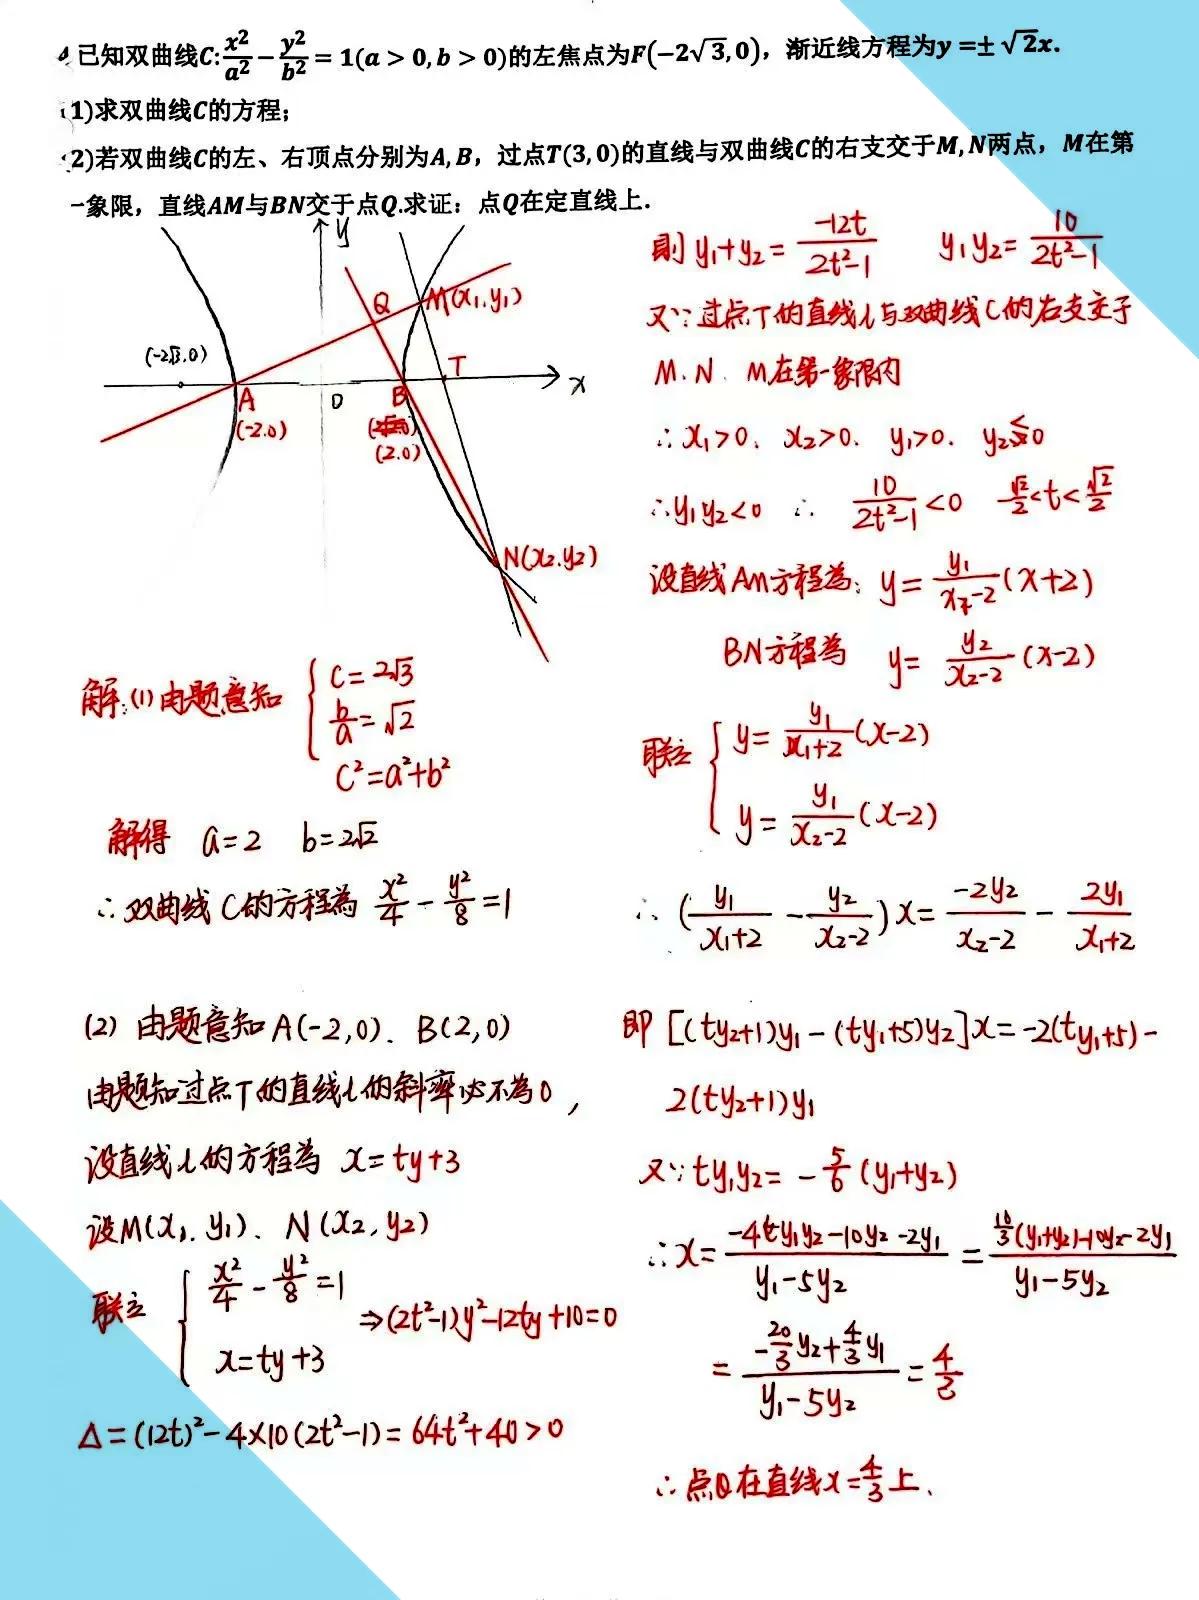 4.已知双曲线C:x²/a² - y²/b² = 1(a > 0, b > 0)的左焦点为F(-2√3, 0)，渐近线方程为y =± √2x.
(1)求双曲线C的方程；
(2)若双曲线C的左、右顶点分别为A, B，过点T(3, 0)的直线与双曲线C的右支交于M, N两点，M在第
一象限，直线AM与BN交于点Q.求证：点Q在定直线上.
y
Q M(x₁,y₁)
(-2√3,0)
T
A O B x
(-2,0)
(2,0)
N(x₂,y₂)
解:(1)由题意知 { c=2√3
b/a=√2
c²=a²+b²
解得 a=2 b=2√2
∴双曲线C的方程為 x²/4 - y²/8 =1
(2) 由题意知A(-2,0)、B(2,0)
由题知过点T的直线l的斜率必不為0，
设直线l的方程為 x=ty+3
设M(x₁,y₁)、N(x₂,y₂)
联立 { x²/4 - y²/8 =1
x=ty+3
⇒(2t²-1)y²-12ty+10=0
△=(12t)²-4×10(2t²-1)=64t²+40>0
则 y₁+y₂= -12t/2t²-1 y₁y₂= 10/2t²-1
又∵过点T的直线l与双曲线C的右支交于
M、N、M在第一象限内
∴x₁>0、x₂>0、y₁>0、y₂≤0
∴y₁y₂<0 ∴ 10/2t²-1 <0 √2/2<t<√2/2
设直线AM方程為: y= (x+2)
BN方程為 y= y₂/x₂-2 (x-2)
联立 { y= y₁/x₁+2 (x-2)
y= y₁/x₂-2 (x-2)
∴ (y₁/x₁+2 - y₂/x₂-2)x= -2y₂/x₂-2 - 2y₁/x₁+2
即 [(ty₂+1)y₁-(ty₁+5)y₂]x=-2(ty₁+5)-
2(ty₂+1)y₁
又∵ty₁y₂= -5/6 (y₁+y₂)
∴x= -4ty₁y₂-10y₂-2y₁/y₁-5y₂ = 10/3(y₁+y₂)-10y₂-2y₁/y₁-5y₂
= -20/3y₂+4/3y₁/y₁-5y₂ = 4/3
∴点Q在直线x=4/3上、